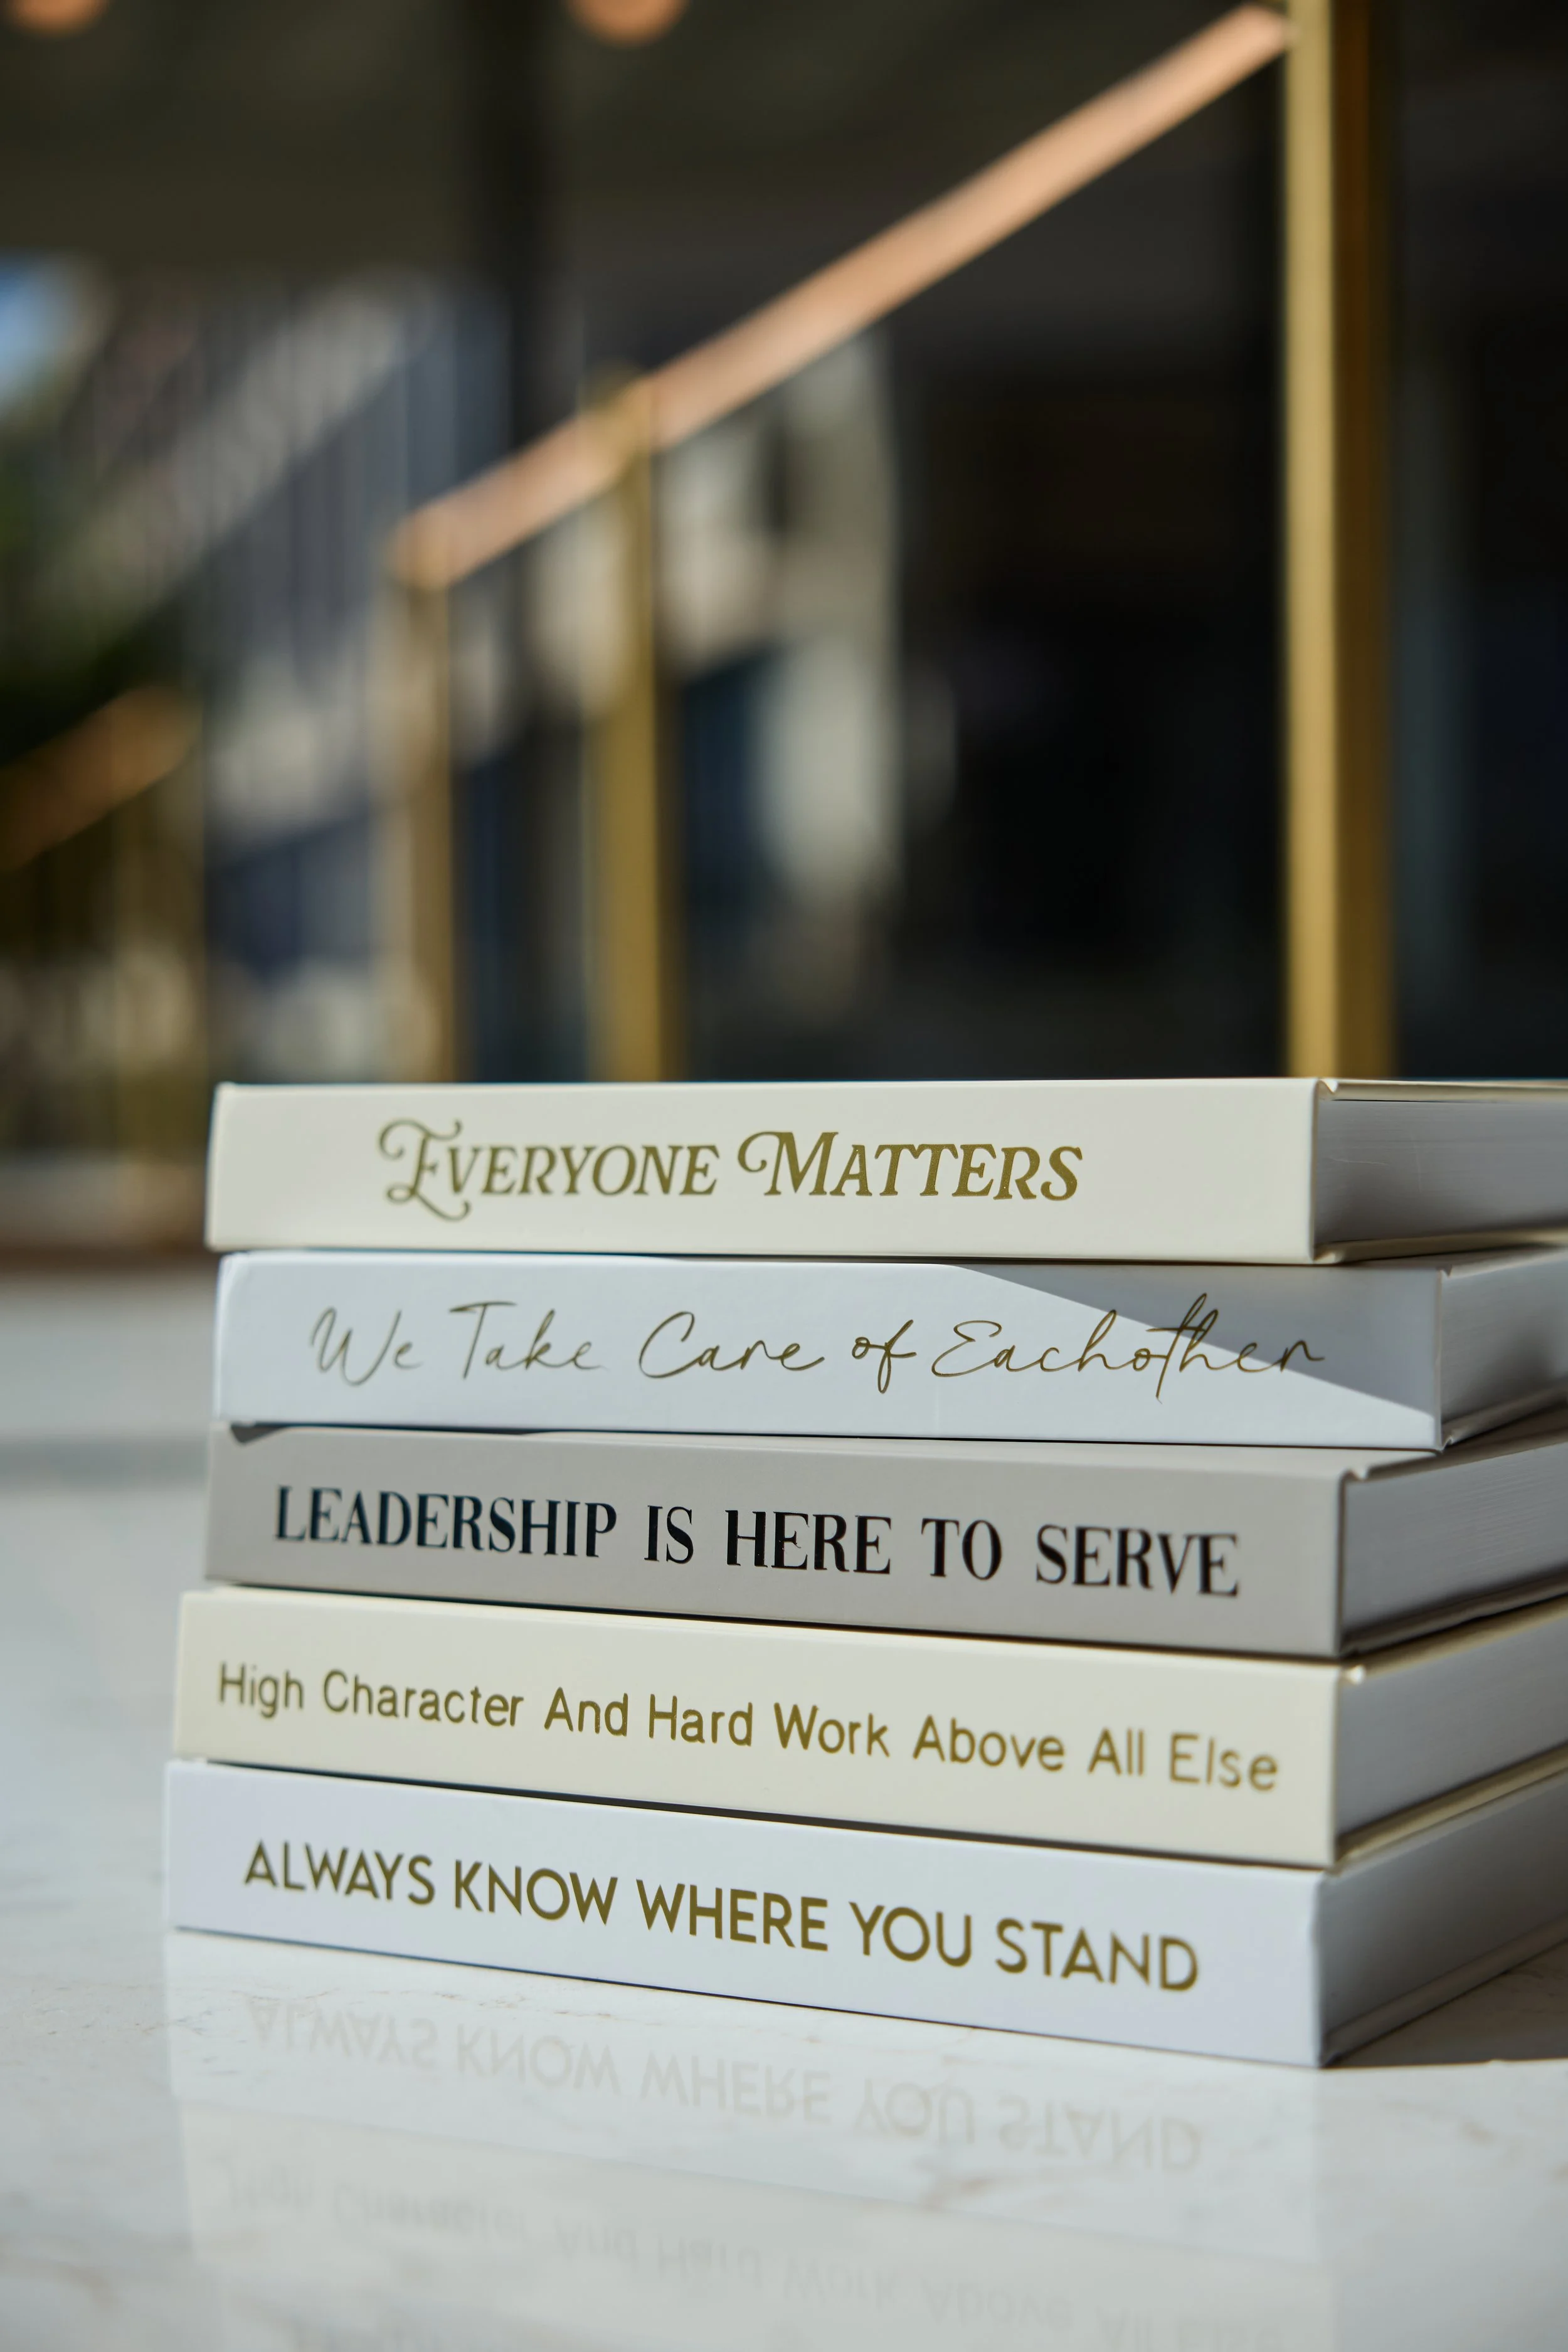 EVERYONE MATTERS
We Take Care of Eachother
LEADERSHIP IS HERE TO SERVE
High Character And Hard Work Above All Else
ALWAYS KNOW WHERE YOU STAND